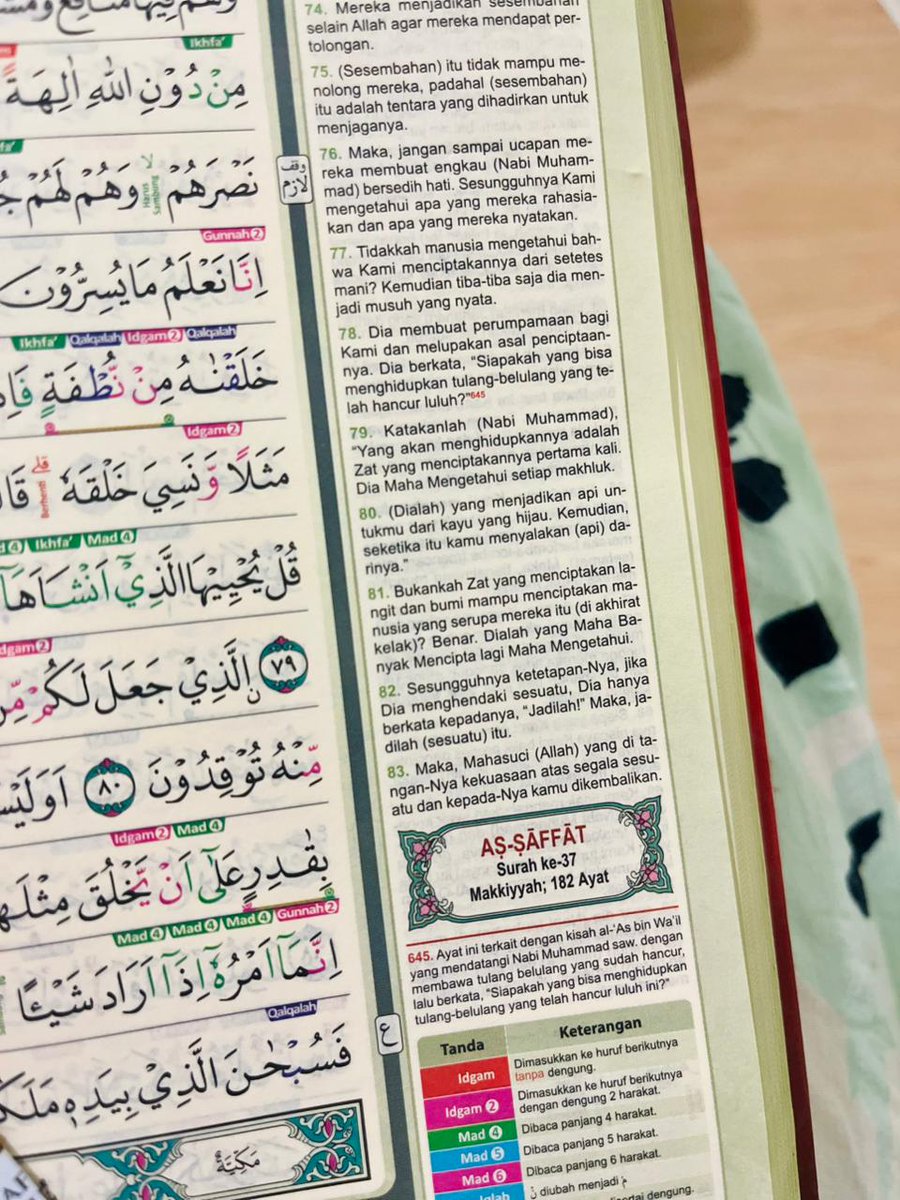 74. Mereka menjadikan sesembahan
selain Allah agar mereka mendapat per-
tolongan.
75. (Sesembahan) itu tidak mampu me-
nolong mereka, padahal (sesembahan)
itu adalah tentara yang dihadirkan untuk
menjaganya.
76. Maka, jangan sampai ucapan me-
reka membuat engkau (Nabi Muham-
mad) bersedih hati. Sesungguhnya Kami
mengetahui apa yang mereka rahasia-
kan dan apa yang mereka nyatakan.
77. Tidakkah manusia mengetahui bah-
wa Kami menciptakannya dari setetes
mani? Kemudian tiba-tiba saja dia men-
jadi musuh yang nyata.
78. Dia membuat perumpamaan bagi
Kami dan melupakan asal penciptaan-
nya. Dia berkata, “Siapakah yang bisa
menghidupkan tulang-belulang yang te-
lah hancur luluh?”645
79. Katakanlah (Nabi Muhammad),
“Yang akan menghidupkannya adalah
Zat yang menciptakannya pertama kali.
Dia Maha Mengetahui setiap makhluk.
80. (Dialah) yang menjadikan api un-
tukmu dari kayu yang hijau. Kemudian,
seketika itu kamu menyalakan (api) da-
rinya.”
81. Bukankah Zat yang menciptakan la-
ngit dan bumi mampu menciptakan ma-
nusia yang serupa mereka itu (di akhirat
kelak)? Benar. Dialah yang Maha Ba-
nyak Mencipta lagi Maha Mengetahui.
82. Sesungguhnya ketetapan-Nya, jika
Dia menghendaki sesuatu, Dia hanya
berkata kepadanya, “Jadilah!” Maka, ja-
dilah (sesuatu) itu.
83. Maka, Mahasuci (Allah) yang di ta-
ngan-Nya kekuasaan atas segala sesu-
atu dan kepada-Nya kamu dikembalikan.
AṢ-ṢĀFFĀT
Surah ke-37
Makkiyyah; 182 Ayat
645. Ayat ini terkait dengan kisah al-‘As bin Wa’il
yang mendatangi Nabi Muhammad saw. dengan
membawa tulang belulang yang sudah hancur,
lalu berkata, “Siapakah yang bisa menghidupkan
tulang-belulang yang telah hancur luluh ini?”
Tanda Keterangan
Idgam Dimasukkan ke huruf berikutnya
tanpa dengung.
Idgam 2 Dimasukkan ke huruf berikutnya
dengan dengung 2 harakat.
Mad 4 Dibaca panjang 4 harakat.
Mad 5 Dibaca panjang 5 harakat.
Mad 6 Dibaca panjang 6 harakat.
Iqlab ن diubah menjadi م
dengung.
Ikhfa’
مِنْ دُوْنِ اللّٰهِ اٰلِهَةً
نَصْرَهُمْ لا Harus Sambung وَهُمْ لَهُمْ
وقف لازم
Gunnah 2
اِنَّا نَعْلَمُ مَا يُسِرُّوْنَ
Ikhfa’ Qalqalah Idgam 2 Qalqalah
خَلَقْنٰهُ مِنْ نُّطْفَةٍ
Idgam 2
مَثَلًا وَّنَسِيَ خَلْقَهٗ قلى Berhenti
Mad 4 Ikhfa’ Mad 4
قُلْ يُحْيِيْهَا الَّذِيْٓ اَنْشَاَهَآ
Idgam 2
٧٩ ۨالَّذِيْ جَعَلَ لَكُمْ
مِّنْهُ تُوْقِدُوْنَ ٨٠
Idgam 2 Mad 4
بِقٰدِرٍ عَلٰٓى اَنْ يَّخْلُقَ
Mad 4 Mad 4 Mad 4 Gunnah 2
اِنَّمَآ اَمْرُهٗٓ اِذَآ اَرَادَ شَيْـًٔا
Qalqalah
ع
فَسُبْحٰنَ الَّذِيْ بِيَدِهٖ
مَكِّيَّةٌ